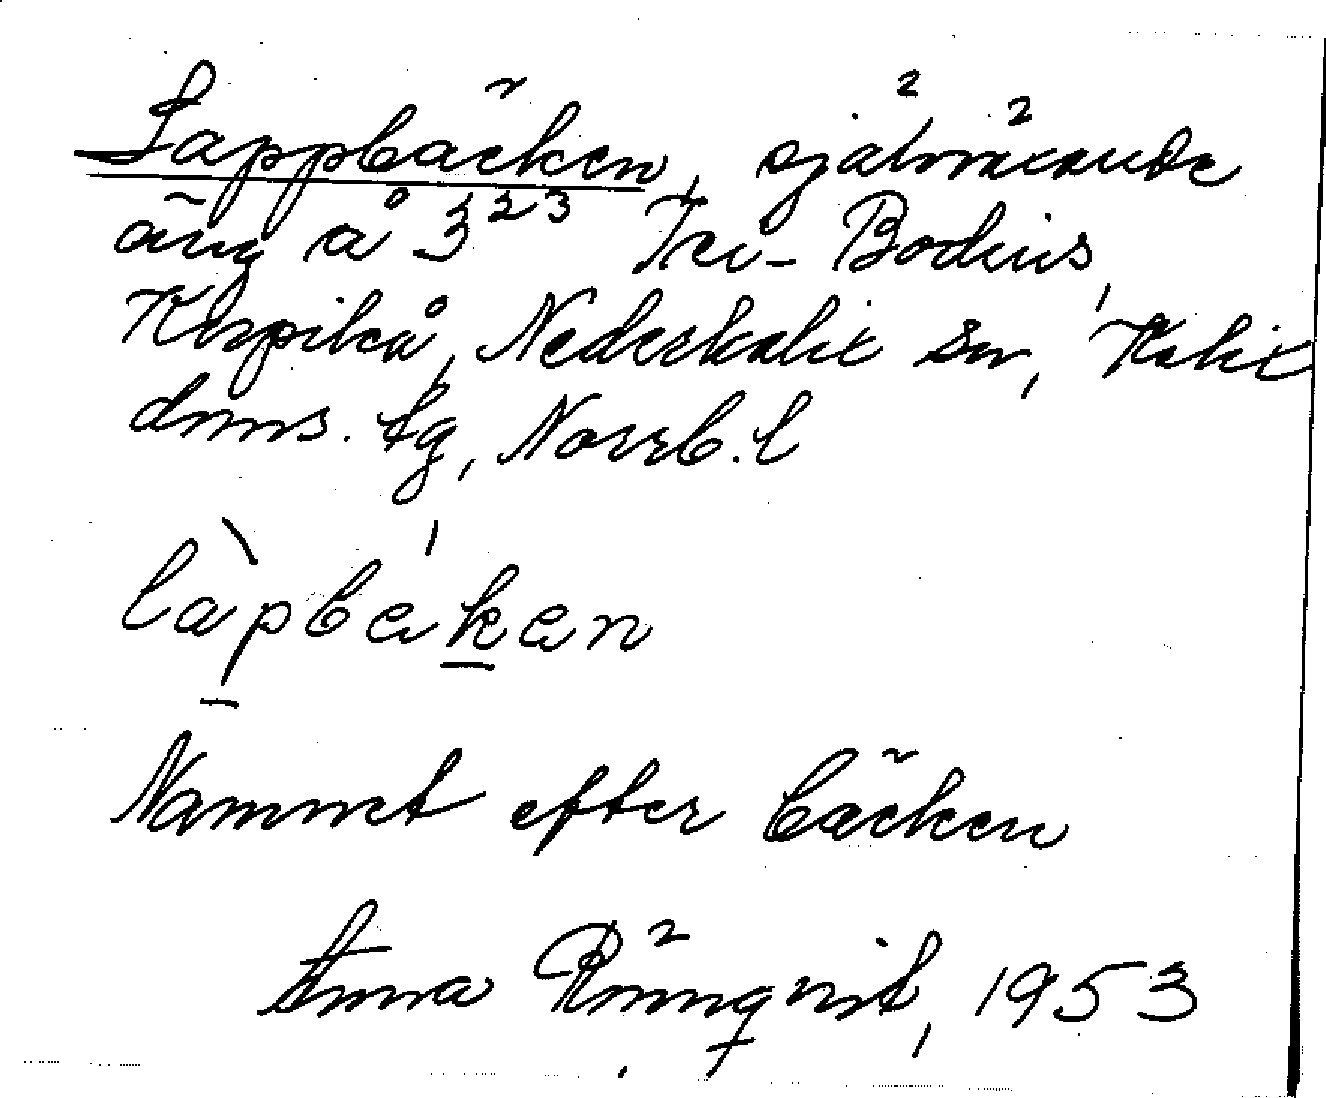 Lappbäcken, självväxande
äng å 3²³ Fri-Bodiis,
Korpikå, Nederkalix sn, Kalix
dmns. tg, Norrb. l
làpbekan
Namnet efter bäcken
Anna Rönnqvist, 1953